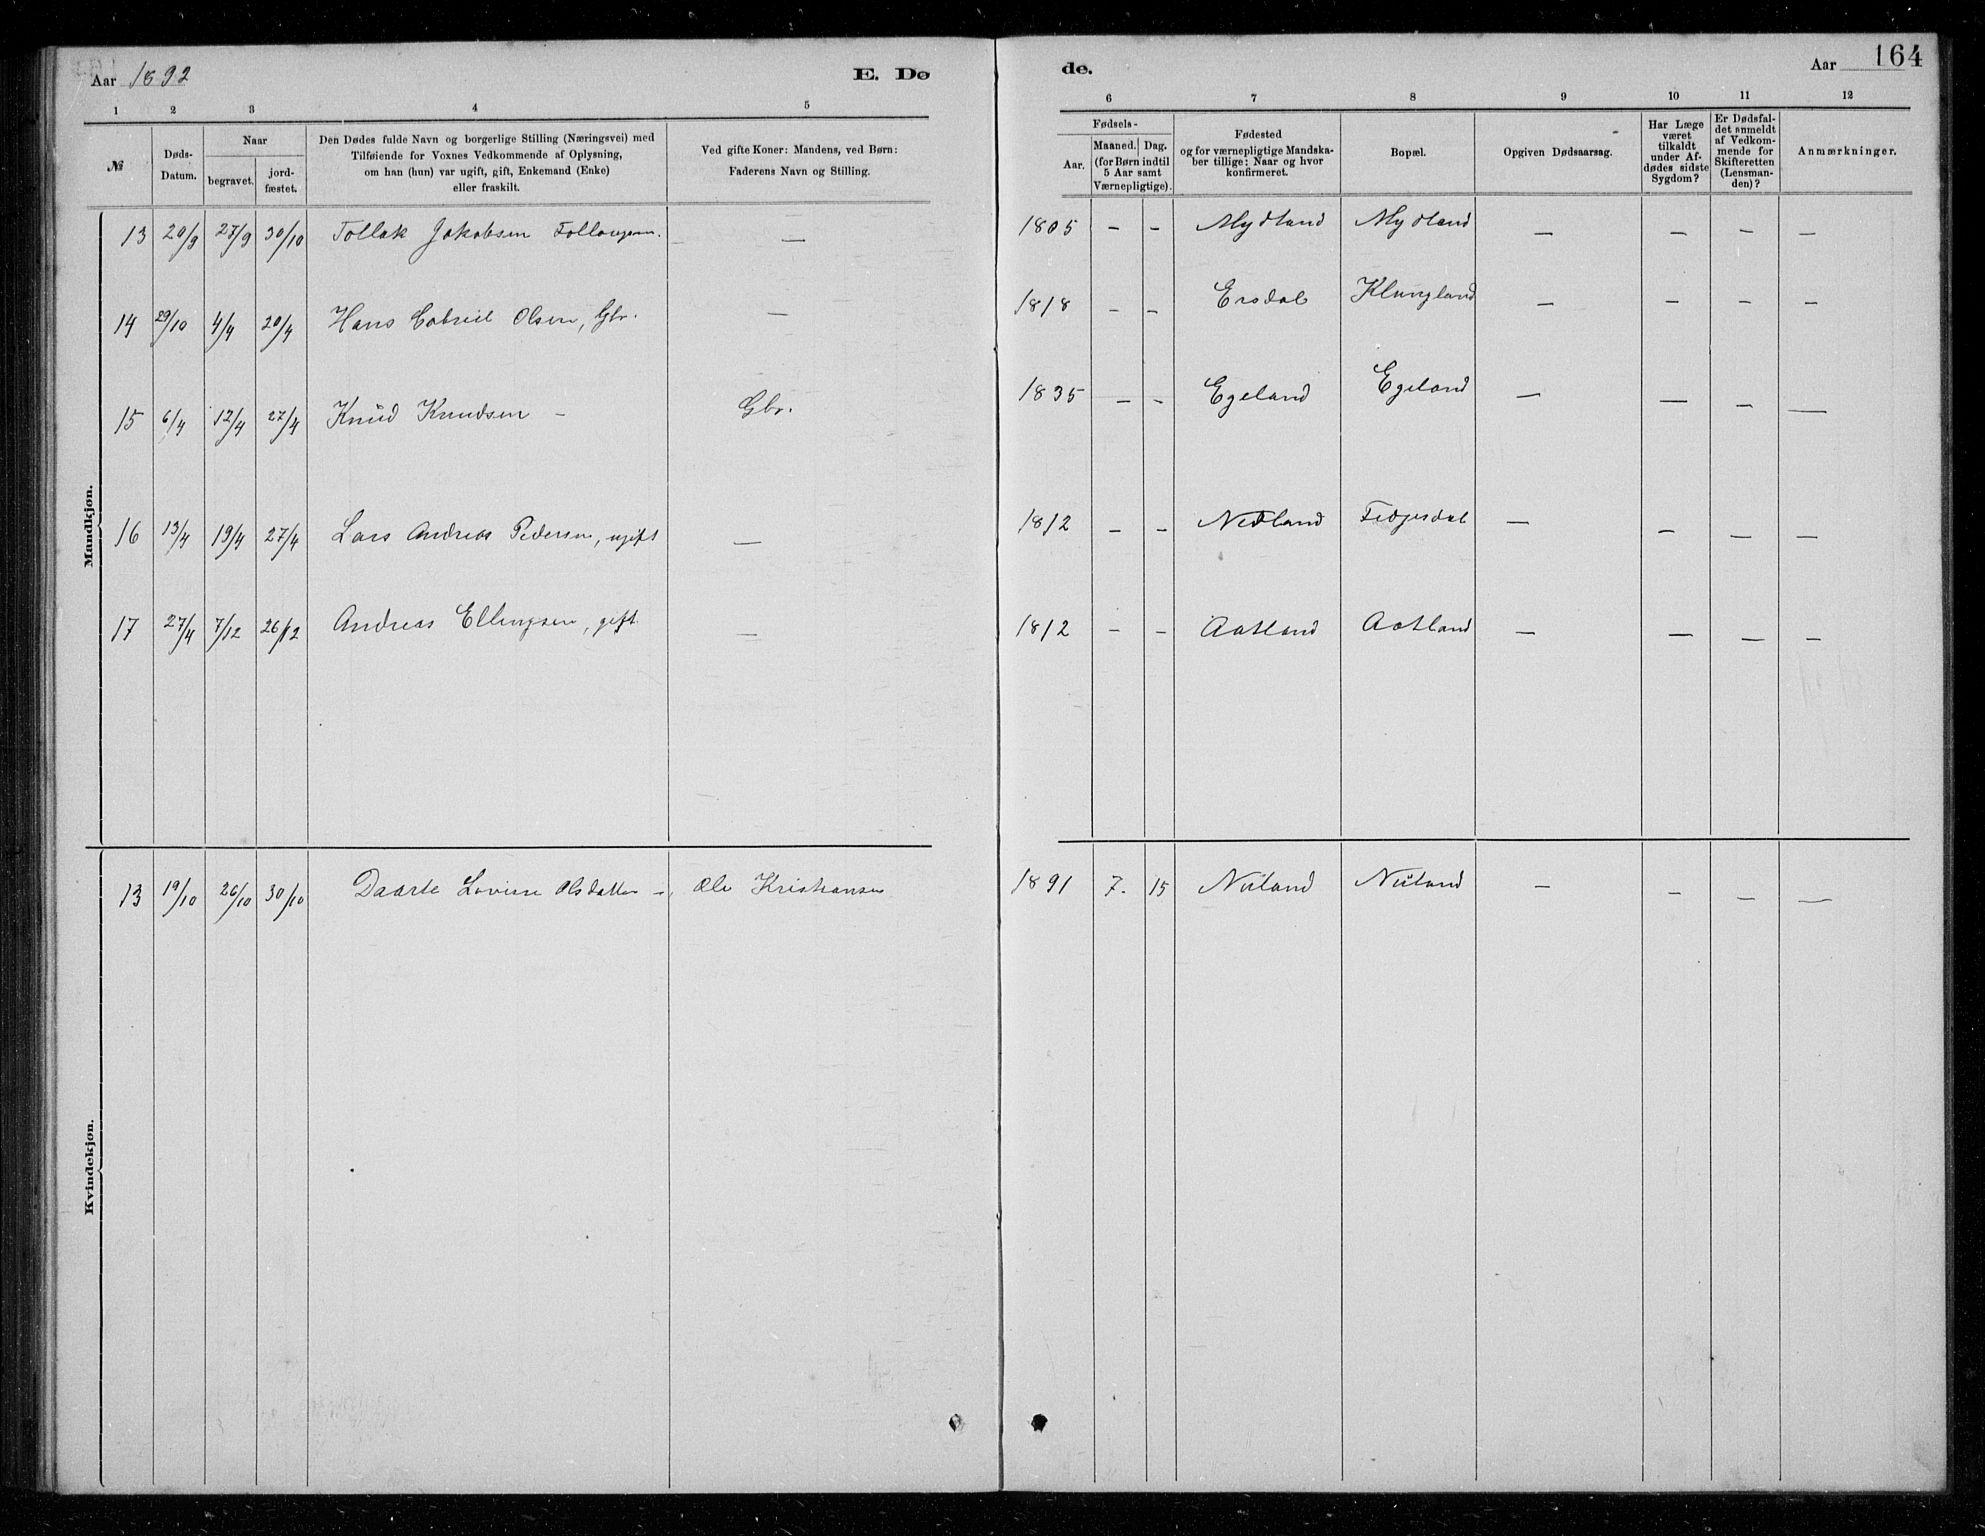 Aar 1892
E. Dø
de.
Aar
164
1 2 3 4 5 6 7 8 9 10 11 12
№
Døds-
Datum.
Naar
begravet.
jord-
fæstet.
Den Dødes fulde Navn og borgerlige Stilling (Næringsvei) med
Tilføiende for Voxnes Vedkommende af Oplysning,
om han (hun) var ugift, gift, Enkemand (Enke)
eller fraskilt.
Ved gifte Koner: Mandens, ved Børn:
Faderens Navn og Stilling.
Fødsels-
Aar.
Maaned. Dag.
(for Børn indtil
5 Aar samt
Værnepligtige).
Fødested
og for værnepligtige Mandska-
ber tillige: Naar og hvor
konfirmeret.
Bopæl.
Opgiven Dødsaarsag.
Har Læge
været
tilkaldt
under Af-
dødes sidste
Sygdom?
Er Dødsfal-
det anmeldt
af Vedkom-
mende for
Skifteretten
(Lensman-
den)?
Anmærkninger.
Mandkjøn.
13 20/9 27/9 30/10 Tollak Jakobsen — 1805 — — Mydland Mydland — — — —
14 29/10 4/4 20/4 Hans Gabriel Olsen, Gbr. — 1818 — — Ersdal Klungland — — — —
15 6/4 12/4 27/4 Knud Knudsen — Gbr. 1835 — — Egeland Egeland — — — —
16 13/4 19/4 27/4 Lars Andreas Pedersen, ugift — 1812 — — Nedland Fidjesdal — — — —
17 27/4 7/12 26/12 Andreas Ellingsen, gift — 1812 — — Aatland Aatland — — — —
Kvindekjøn.
13 19/10 26/10 30/10 Daarte Lovise Olsdatter —, Ole Kristiansen 1891 7. 15 Nuland Nuland — — — —